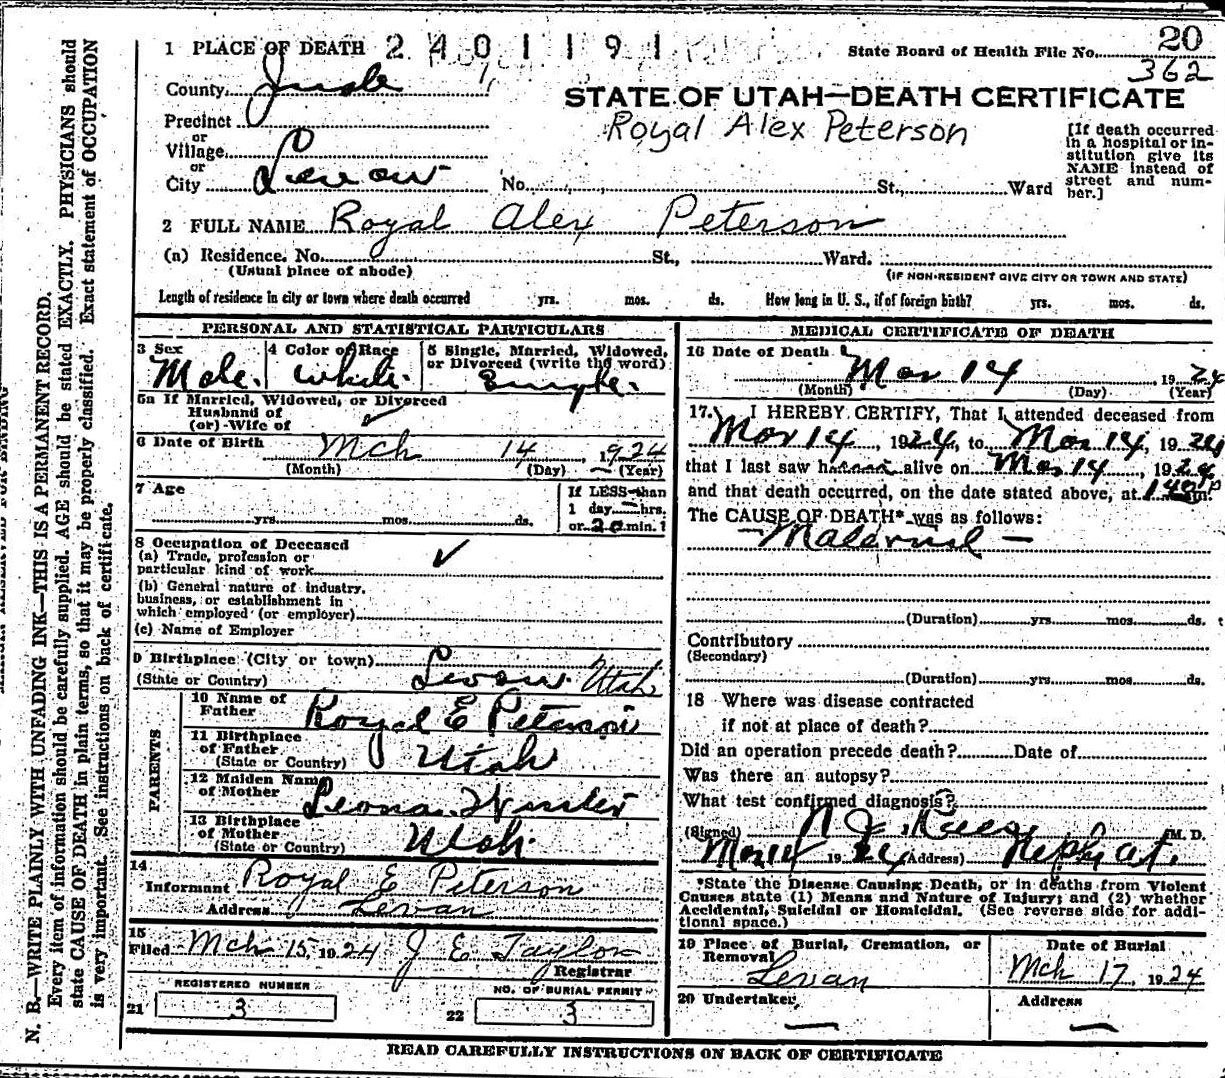 1 PLACE OF DEATH 2401191
State Board of Health File No. 20
362
County Juab
STATE OF UTAH—DEATH CERTIFICATE
Royal Alex Peterson
Precinct
or
Village
or
City Levan No. St., Ward
[If death occurred
in a hospital or in-
stitution give its
NAME instead of
street and num-
ber.]
2 FULL NAME Royal Alex Peterson
(a) Residence. No. St., Ward.
(Usual place of abode) (IF NON-RESIDENT GIVE CITY OR TOWN AND STATE)
Length of residence in city or town where death occurred yrs. mos. ds. How long in U. S., if of foreign birth? yrs. mos. ds.
PERSONAL AND STATISTICAL PARTICULARS
3 Sex 4 Color or Race 5 Single, Married, Widowed,
or Divorced (write the word)
Male. White. Single.
5a If Married, Widowed, or Divorced
Husband of
(or) Wife of
6 Date of Birth Mch 14 1924
(Month) (Day) (Year)
7 Age
yrs. mos. ds.
If LESS than
1 day hrs.
or 20 min.
8 Occupation of Deceased
(a) Trade, profession or
particular kind of work
(b) General nature of industry,
business, or establishment in
which employed (or employer)
(c) Name of Employer
9 Birthplace (City or town)
(State or Country) Levan Utah
PARENTS
10 Name of
Father Royal E Peterson
11 Birthplace
of Father
(State or Country) Utah
12 Maiden Name
of Mother Leona
13 Birthplace
of Mother
(State or Country) Utah.
14
Informant Royal E Peterson
Address Levan
15
Filed Mch 15 1924 J E Taylor
Registrar
REGISTERED NUMBER NO. OF BURIAL PERMIT
21 3 22 3
MEDICAL CERTIFICATE OF DEATH
16 Date of Death Mar 14 1924
(Month) (Day) (Year)
17. I HEREBY CERTIFY, That I attended deceased from
Mar 14, 1924, to Mar 14, 1924
that I last saw h alive on Mar 14, 1924
and that death occurred, on the date stated above, at m.
The CAUSE OF DEATH* was as follows:
(Duration) yrs. mos. ds.
Contributory
(Secondary)
(Duration) yrs. mos. ds.
18 Where was disease contracted
if not at place of death?
Did an operation precede death? Date of
Was there an autopsy?
What test confirmed diagnosis?
(Signed) M. D.
19 24 (Address) Nephi
*State the Disease Causing Death, or in deaths from Violent
Causes state (1) Means and Nature of Injury; and (2) whether
Accidental, Suicidal or Homicidal. (See reverse side for addi-
tional space.)
19 Place of Burial, Cremation, or
Removal Levan
Date of Burial
Mch 17 1924
20 Undertaker Address
READ CAREFULLY INSTRUCTIONS ON BACK OF CERTIFICATE
N. B.—WRITE PLAINLY WITH UNFADING INK—THIS IS A PERMANENT RECORD.
Every item of information should be carefully supplied. AGE should be stated EXACTLY. PHYSICIANS should
state CAUSE OF DEATH in plain terms, so that it may be properly classified. Exact statement of OCCUPATION
is very important. See instructions on back of certificate.